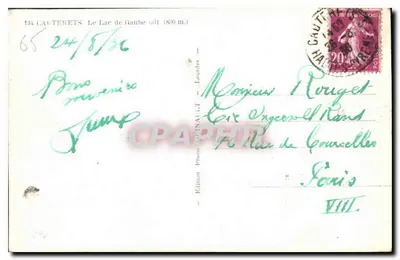 134 CAUTERETS. Le Lac de Gaube (alt. 1800 m.)
65
24/8/36
Bons
souvenirs
CARTAPHILE
Edition Lourdes
CAUTERETS
20
Monsieur Rouget
Cie Ingersoll Rand
Rue de Courcelles
Paris
VIII.